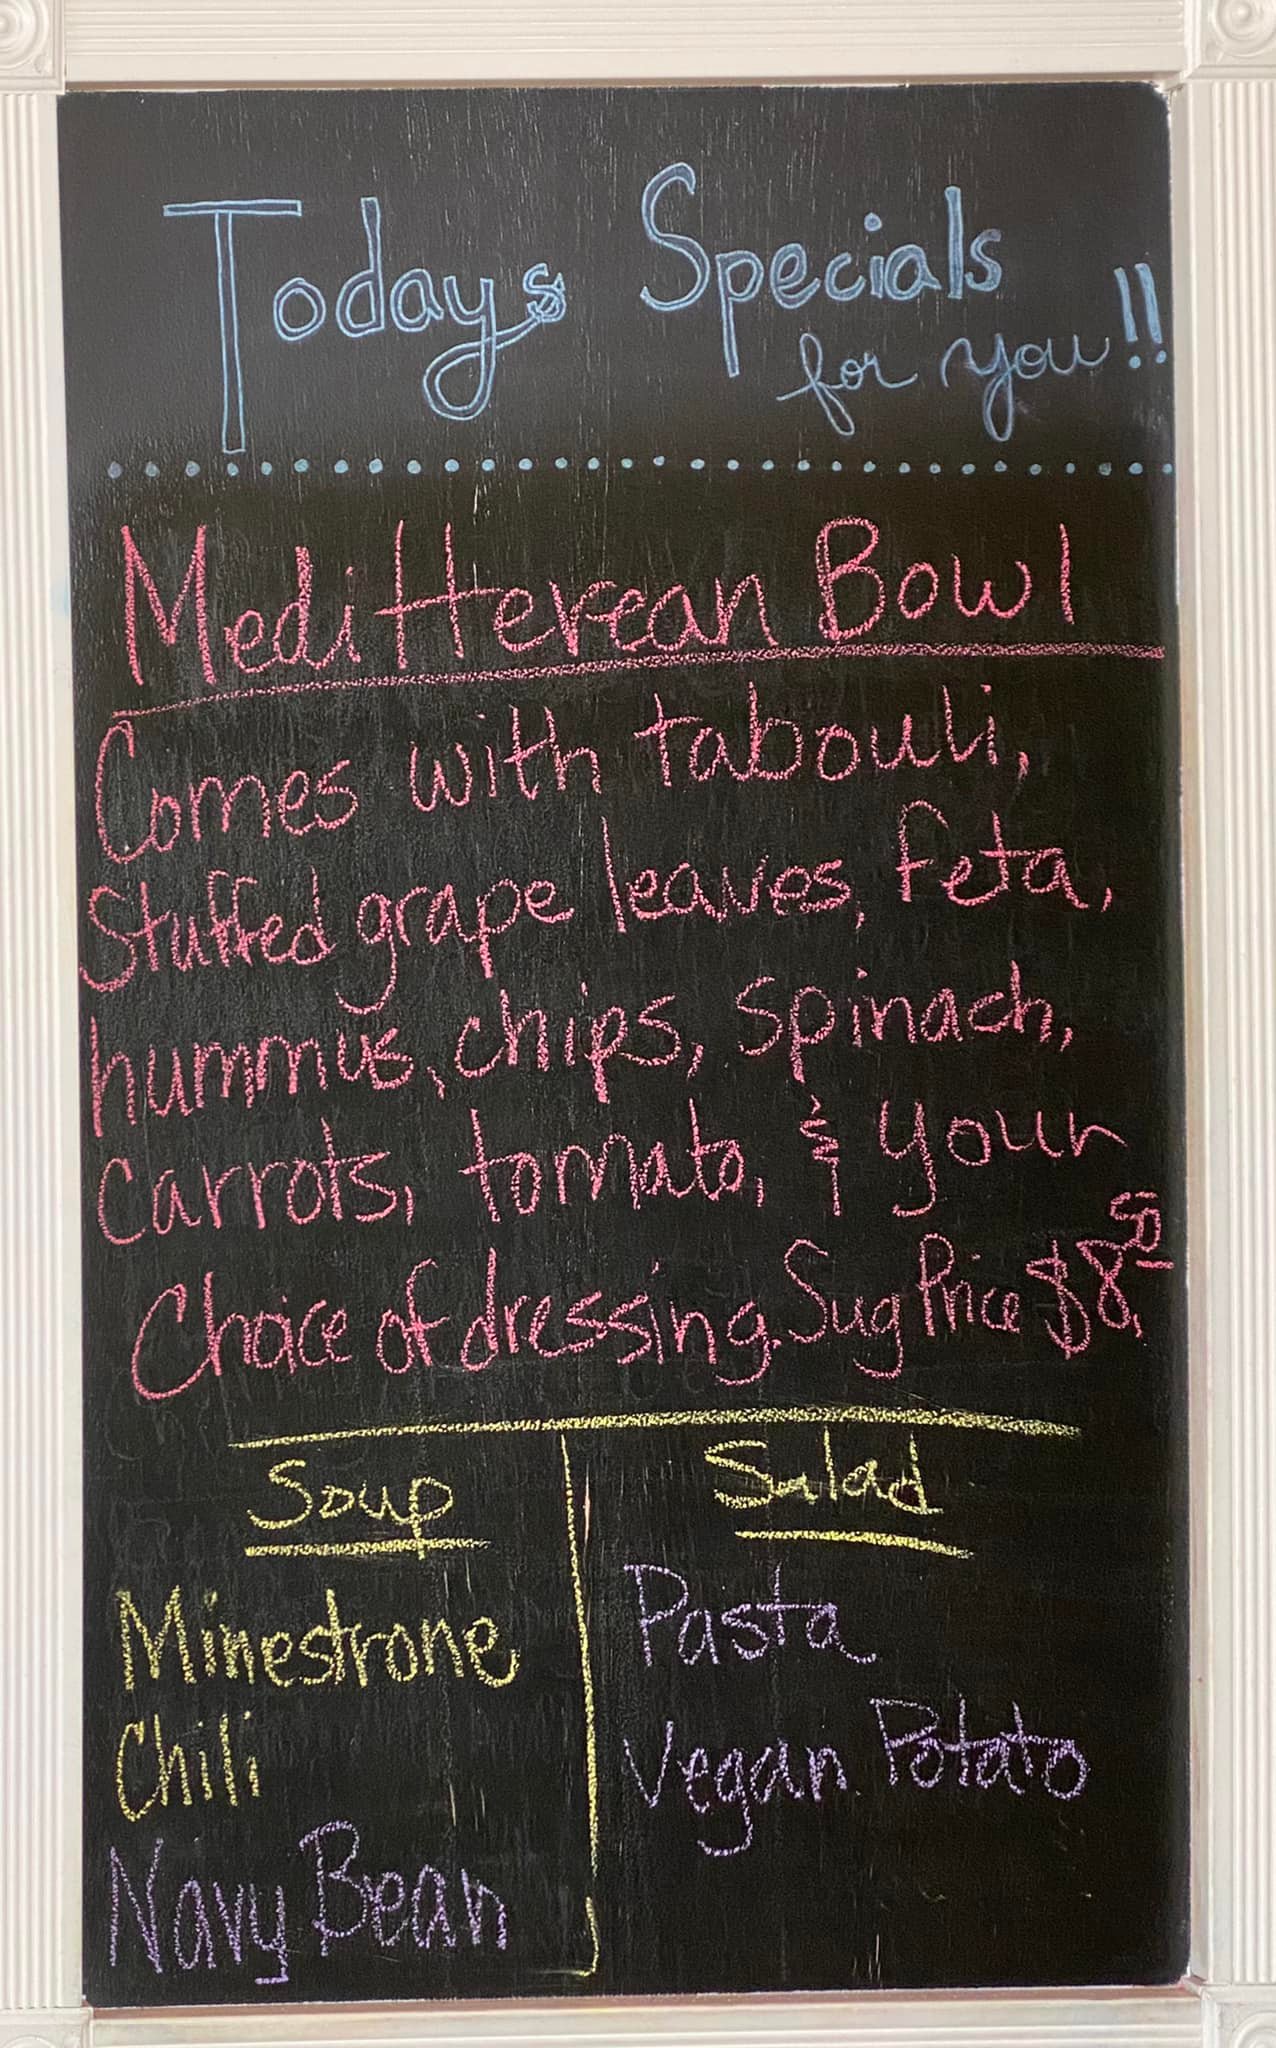 Todays Specials
for you!!
Meditterean Bowl
Comes with tabouli,
Stuffed grape leaves, feta,
hummus, chips, spinach,
Carrots, tomato, & your
Choice of dressing. Sug Price $8.50
Soup
Salad
Minestrone
Pasta
Chili
Vegan Potato
Navy Bean